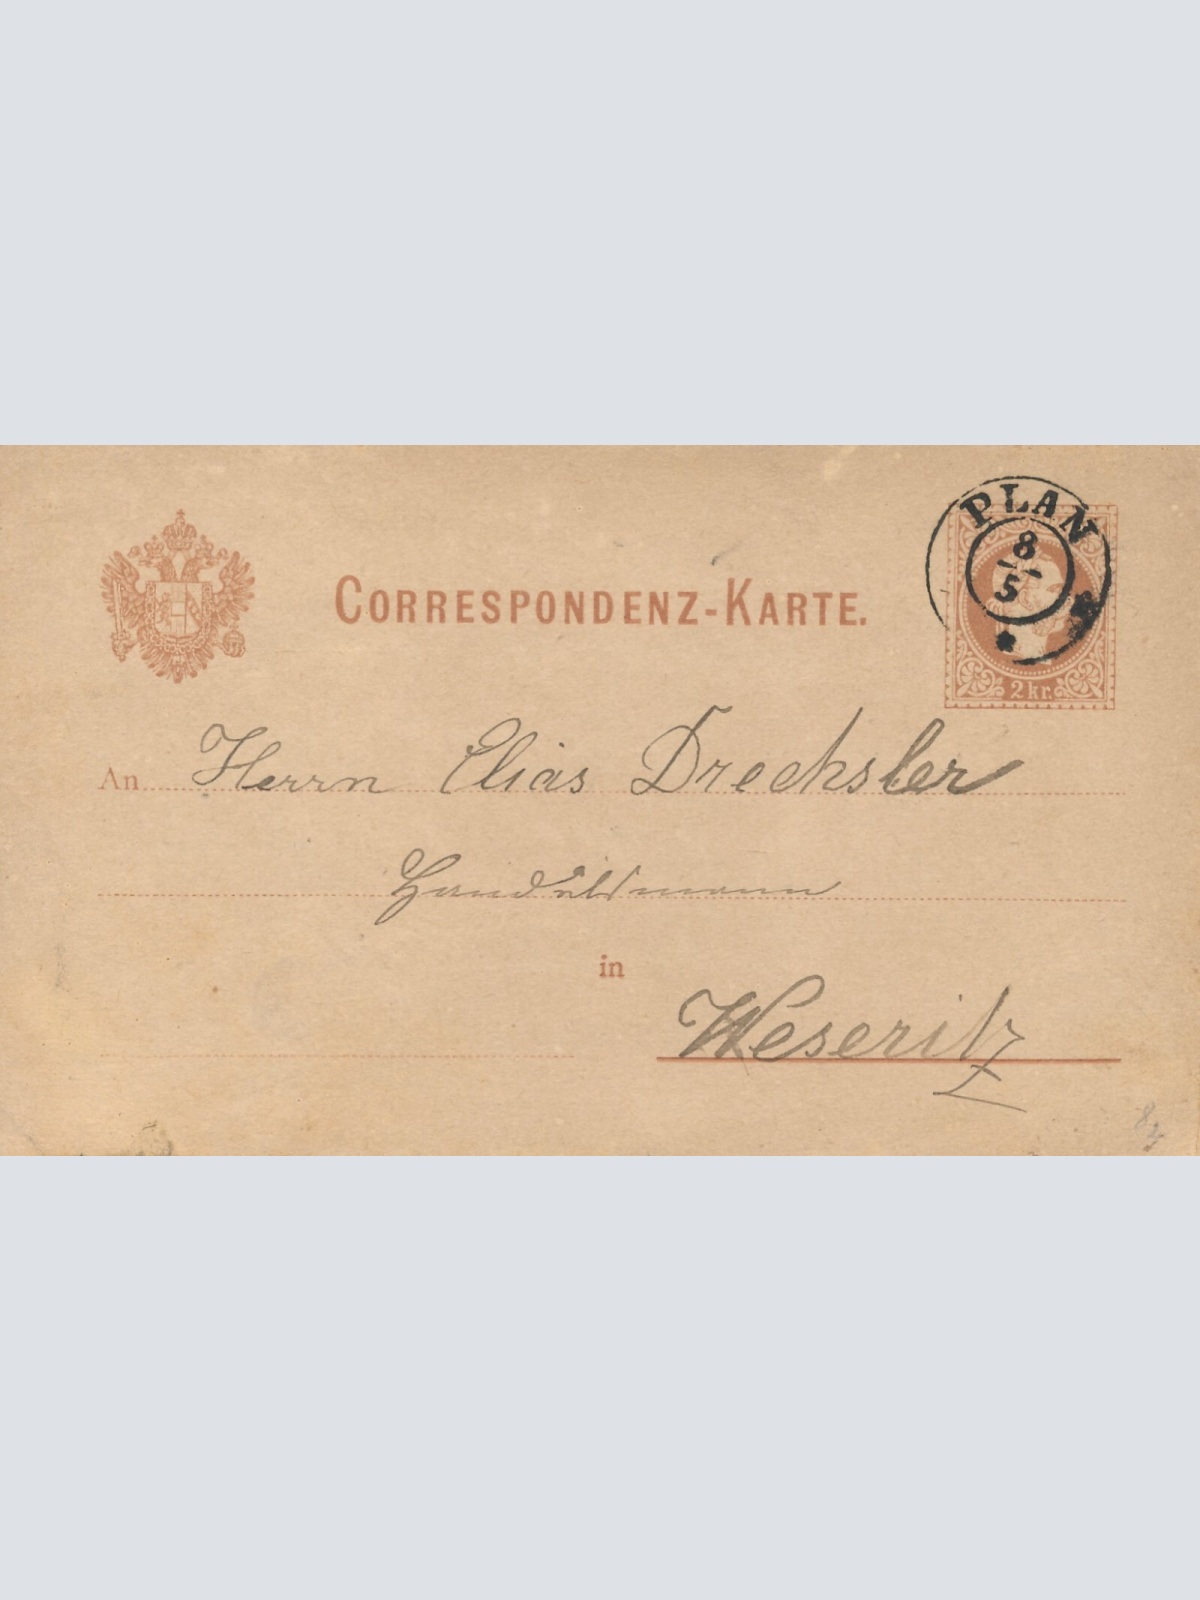 PLAN
8
5
CORRESPONDENZ-KARTE.
2 kr.
An Herrn Elias Drechsler
Handelsmann
in
Weseritz